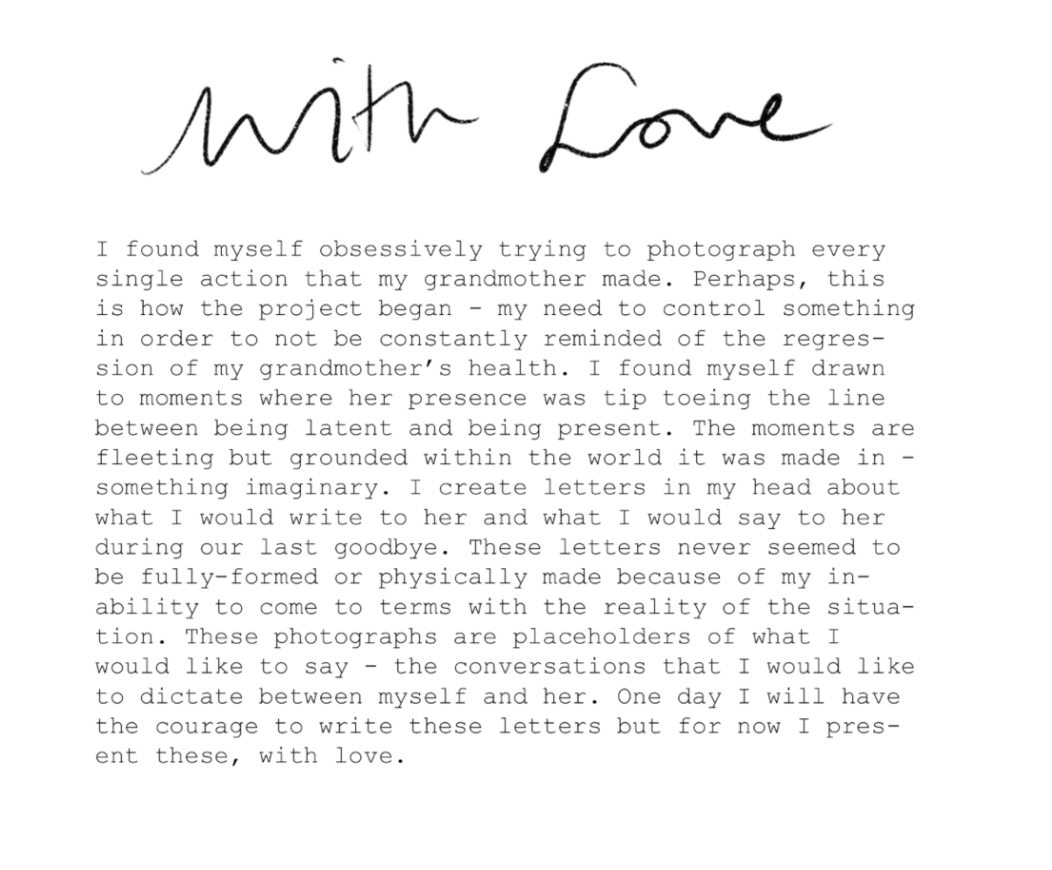 With Love
I found myself obsessively trying to photograph every
single action that my grandmother made. Perhaps, this
is how the project began - my need to control something
in order to not be constantly reminded of the regres-
sion of my grandmother’s health. I found myself drawn
to moments where her presence was tip toeing the line
between being latent and being present. The moments are
fleeting but grounded within the world it was made in -
something imaginary. I create letters in my head about
what I would write to her and what I would say to her
during our last goodbye. These letters never seemed to
be fully-formed or physically made because of my in-
ability to come to terms with the reality of the situa-
tion. These photographs are placeholders of what I
would like to say - the conversations that I would like
to dictate between myself and her. One day I will have
the courage to write these letters but for now I pres-
ent these, with love.